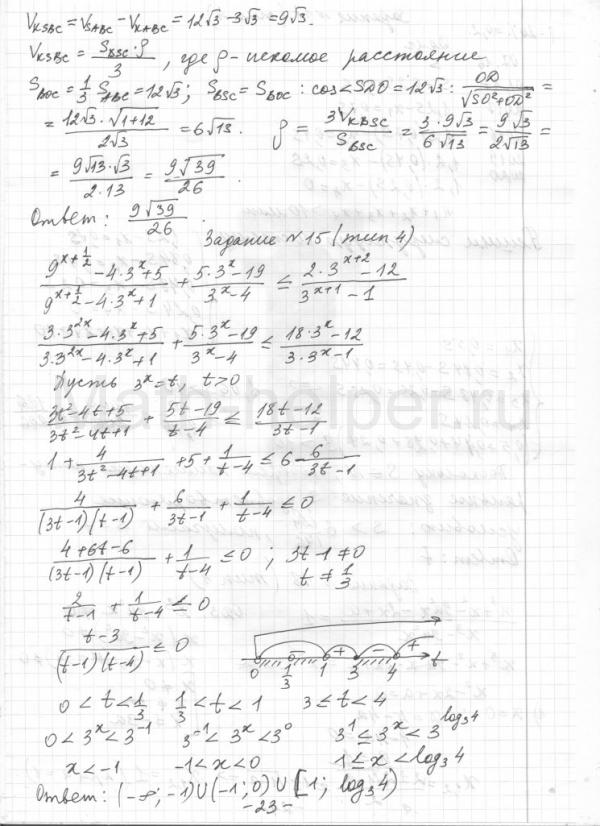 V_KSBC = V_SABC − V_KABC = 12√3 − 3√3 = 9√3.
V_KSBC = (S_BSC · ρ)/3, где ρ - искомое расстояние
S_BOC = 1/3 S_ABC = 12√3; S_BSC = S_BOC : cos∠SDO = 12√3 : OD/√(SO²+OD²) =
= (12√3 · √(1+12))/(2√3) = 6√13. ρ = 3V_KBSC/S_BSC = (3·9√3)/(6√13) = 9√3/(2√13) =
= (9√13·√3)/(2·13) = 9√39/26.
Ответ: 9√39/26.
Задание №15 (тип 4)
(9^(x+1/2) − 4·3^x + 5)/(9^(x+1/2) − 4·3^x + 1) + (5·3^x − 19)/(3^x − 4) ≤ (2·3^(x+2) − 12)/(3^(x+1) − 1)
(3·3^(2x) − 4·3^x + 5)/(3·3^(2x) − 4·3^x + 1) + (5·3^x − 19)/(3^x − 4) ≤ (18·3^x − 12)/(3·3^x − 1)
Пусть 3^x = t, t > 0
Math-helper.ru
(3t² − 4t + 5)/(3t² − 4t + 1) + (5t − 19)/(t − 4) ≤ (18t − 12)/(3t − 1)
1 + 4/(3t² − 4t + 1) + 5 + 1/(t − 4) ≤ 6 − 6/(3t − 1)
4/((3t−1)(t−1)) + 6/(3t−1) + 1/(t−4) ≤ 0
(4 + 6t − 6)/((3t−1)(t−1)) + 1/(t−4) ≤ 0 ; 3t − 1 ≠ 0
t ≠ 1/3
2/(t−1) + 1/(t−4) ≤ 0
(t−3)/((t−1)(t−4)) ≤ 0
− + − +
0 1/3 1 3 4 t
0 < t < 1/3 1/3 < t < 1 3 ≤ t < 4
0 < 3^x < 3^(−1) 3^(−1) < 3^x < 3^0 3^1 ≤ 3^x < 3^(log₃4)
x < −1 −1 < x < 0 1 ≤ x < log₃4
Ответ: (−∞; −1) ∪ (−1; 0) ∪ [1; log₃4)
-23-